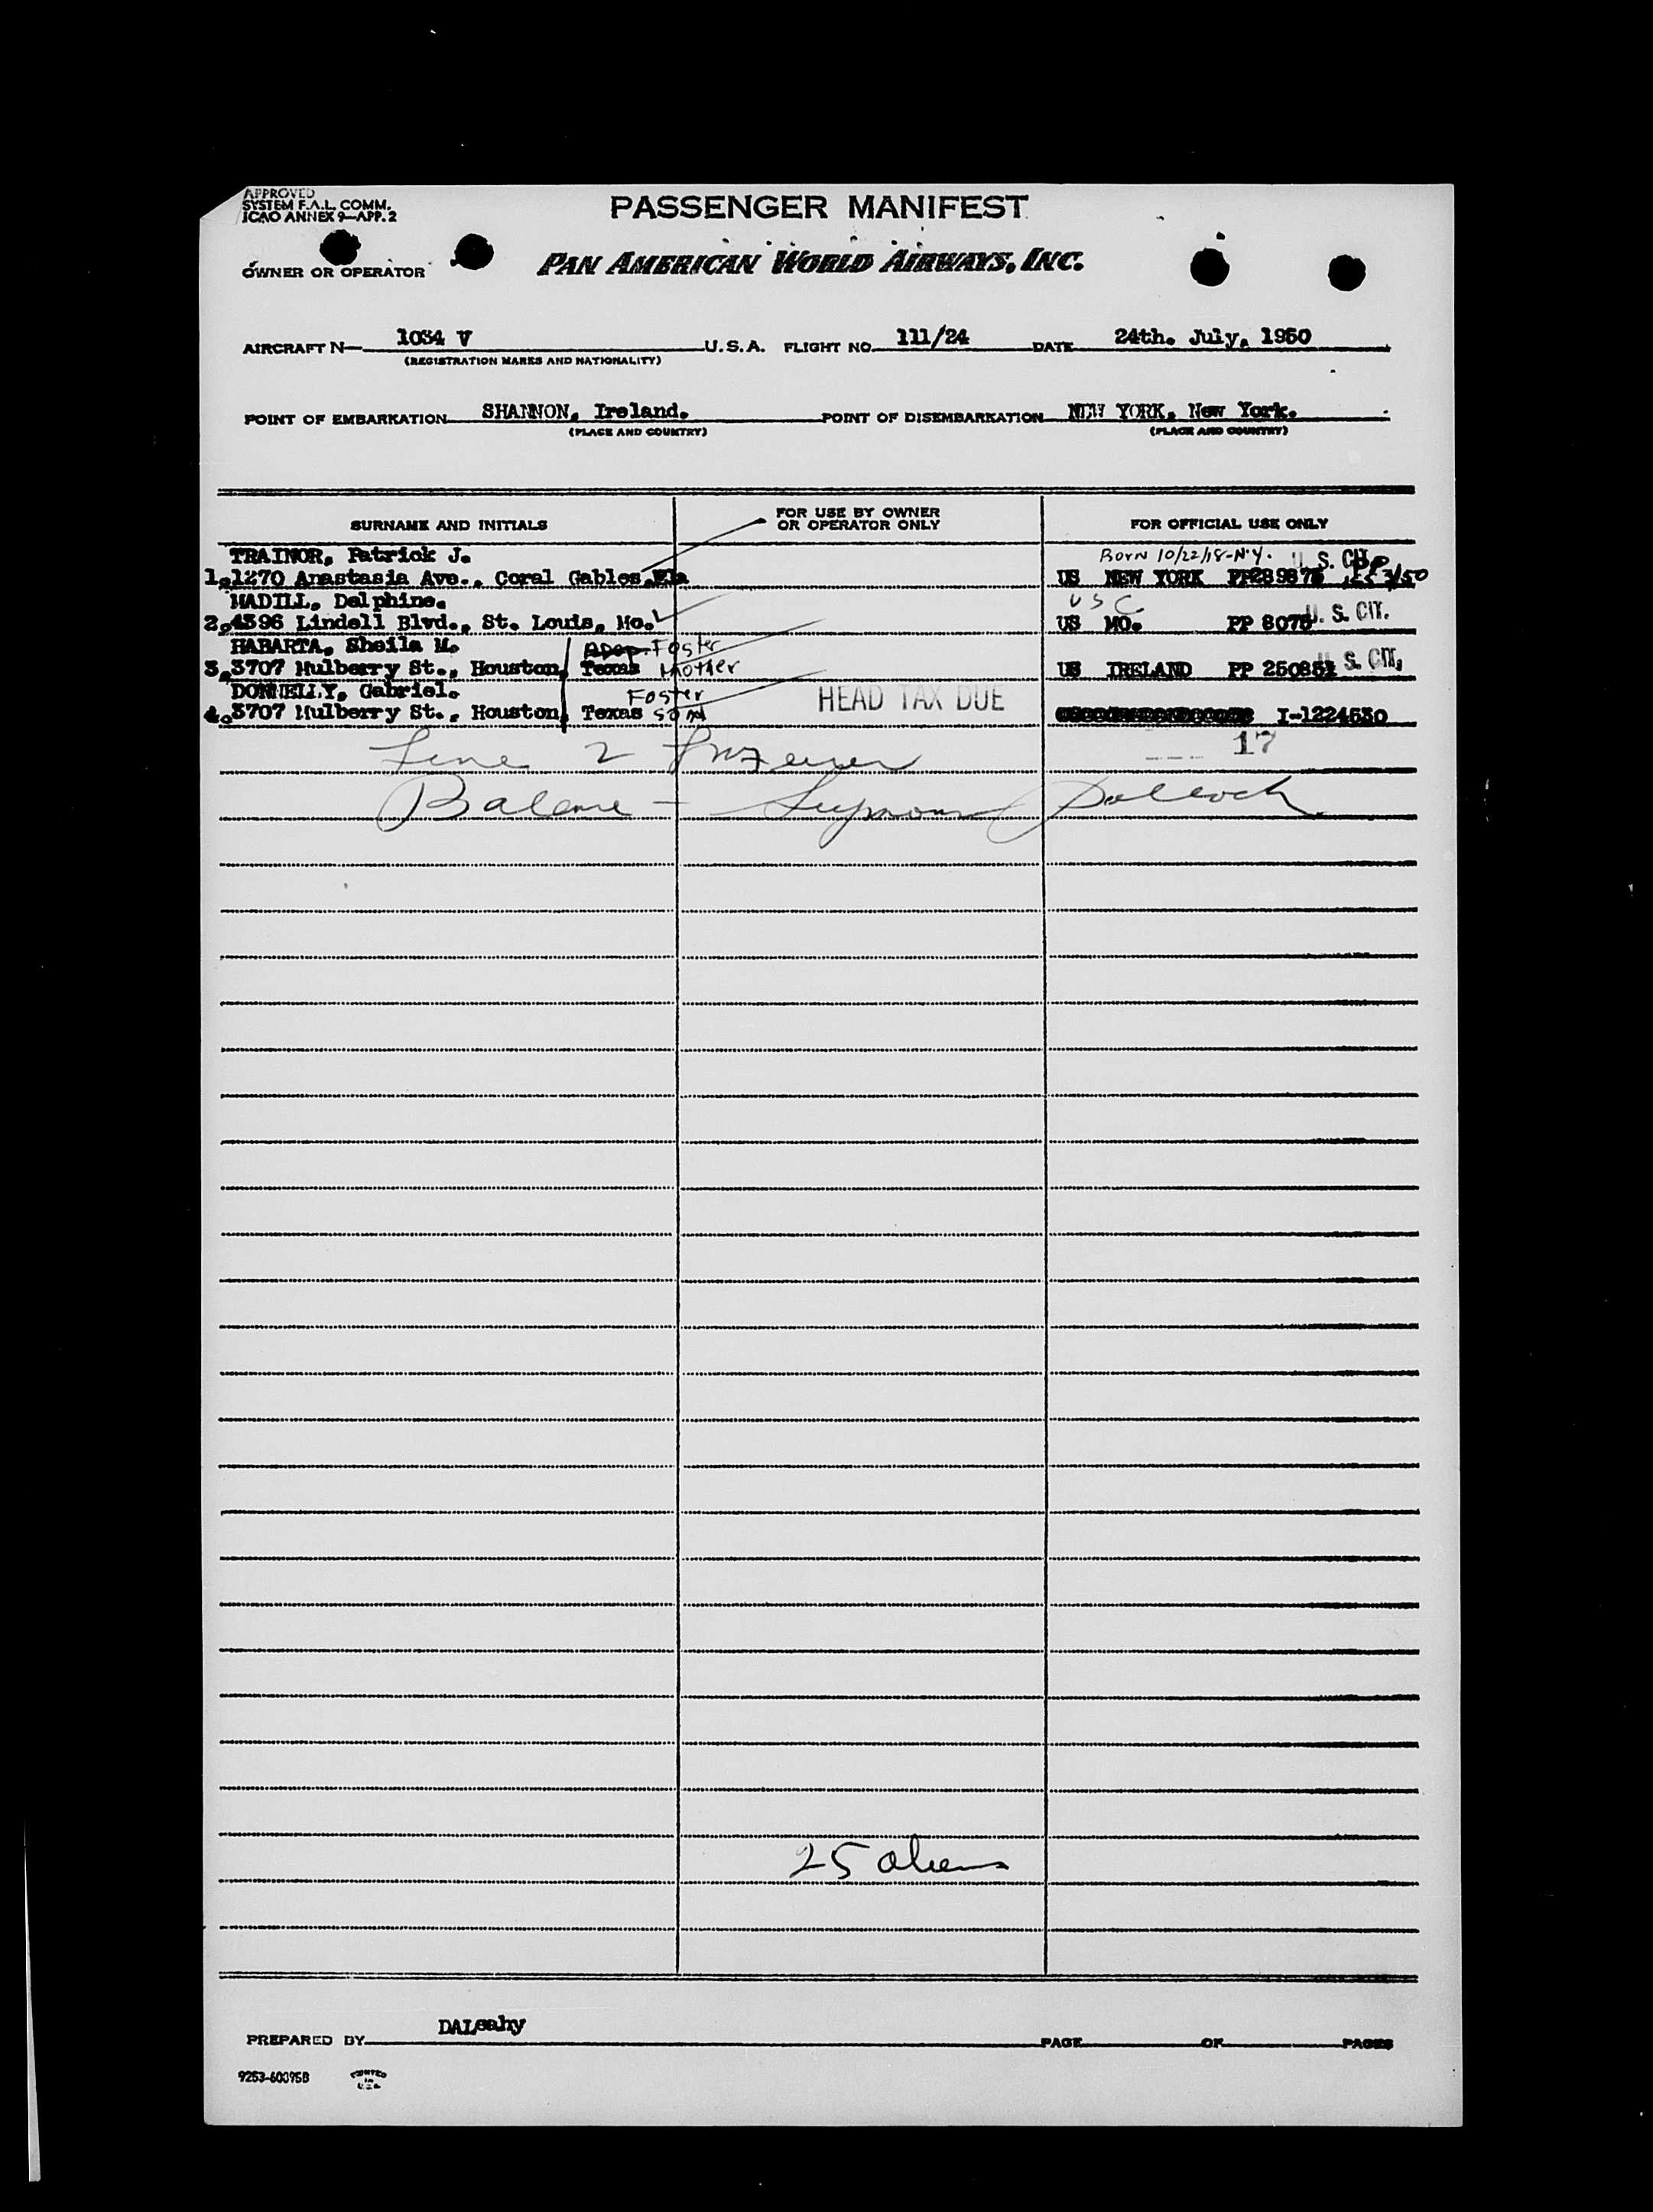 APPROVED
SYSTEM F.A.L. COMM.
ICAO ANNEX 9—APP. 2
PASSENGER MANIFEST
OWNER OR OPERATOR
PAN AMERICAN WORLD AIRWAYS, INC.
AIRCRAFT N— 1034 V U.S.A. FLIGHT NO. 111/24 DATE 24th. July, 1950
(REGISTRATION MARKS AND NATIONALITY)
POINT OF EMBARKATION SHANNON, Ireland. POINT OF DISEMBARKATION NEW YORK, New York.
(PLACE AND COUNTRY) (PLACE AND COUNTRY)
SURNAME AND INITIALS FOR USE BY OWNER OR OPERATOR ONLY FOR OFFICIAL USE ONLY
TRAINOR, Patrick J. Born 10/22/18-N.Y. U.S. CIT.
1.1270 Anastasia Ave., Coral Gables,Fla US NEW YORK PP289876
MADILL, Delphine. USC
2.4396 Lindell Blvd., St. Louis, Mo. US MO. PP 8075 U. S. CIT.
HABARTA, Sheila M. Foster
3.3707 Mulberry St., Houston, Texas Mother US IRELAND PP 250851 S. CIT.
DONNELLY, Gabriel. Foster
4.3707 Mulberry St., Houston, Texas Son HEAD TAX DUE I-1224530
Line 2 17
Balance - Seymour
25 aliens
PREPARED BY DALeahy PAGE OF PAGES
9253-60095B PRINTED IN U.S.A.